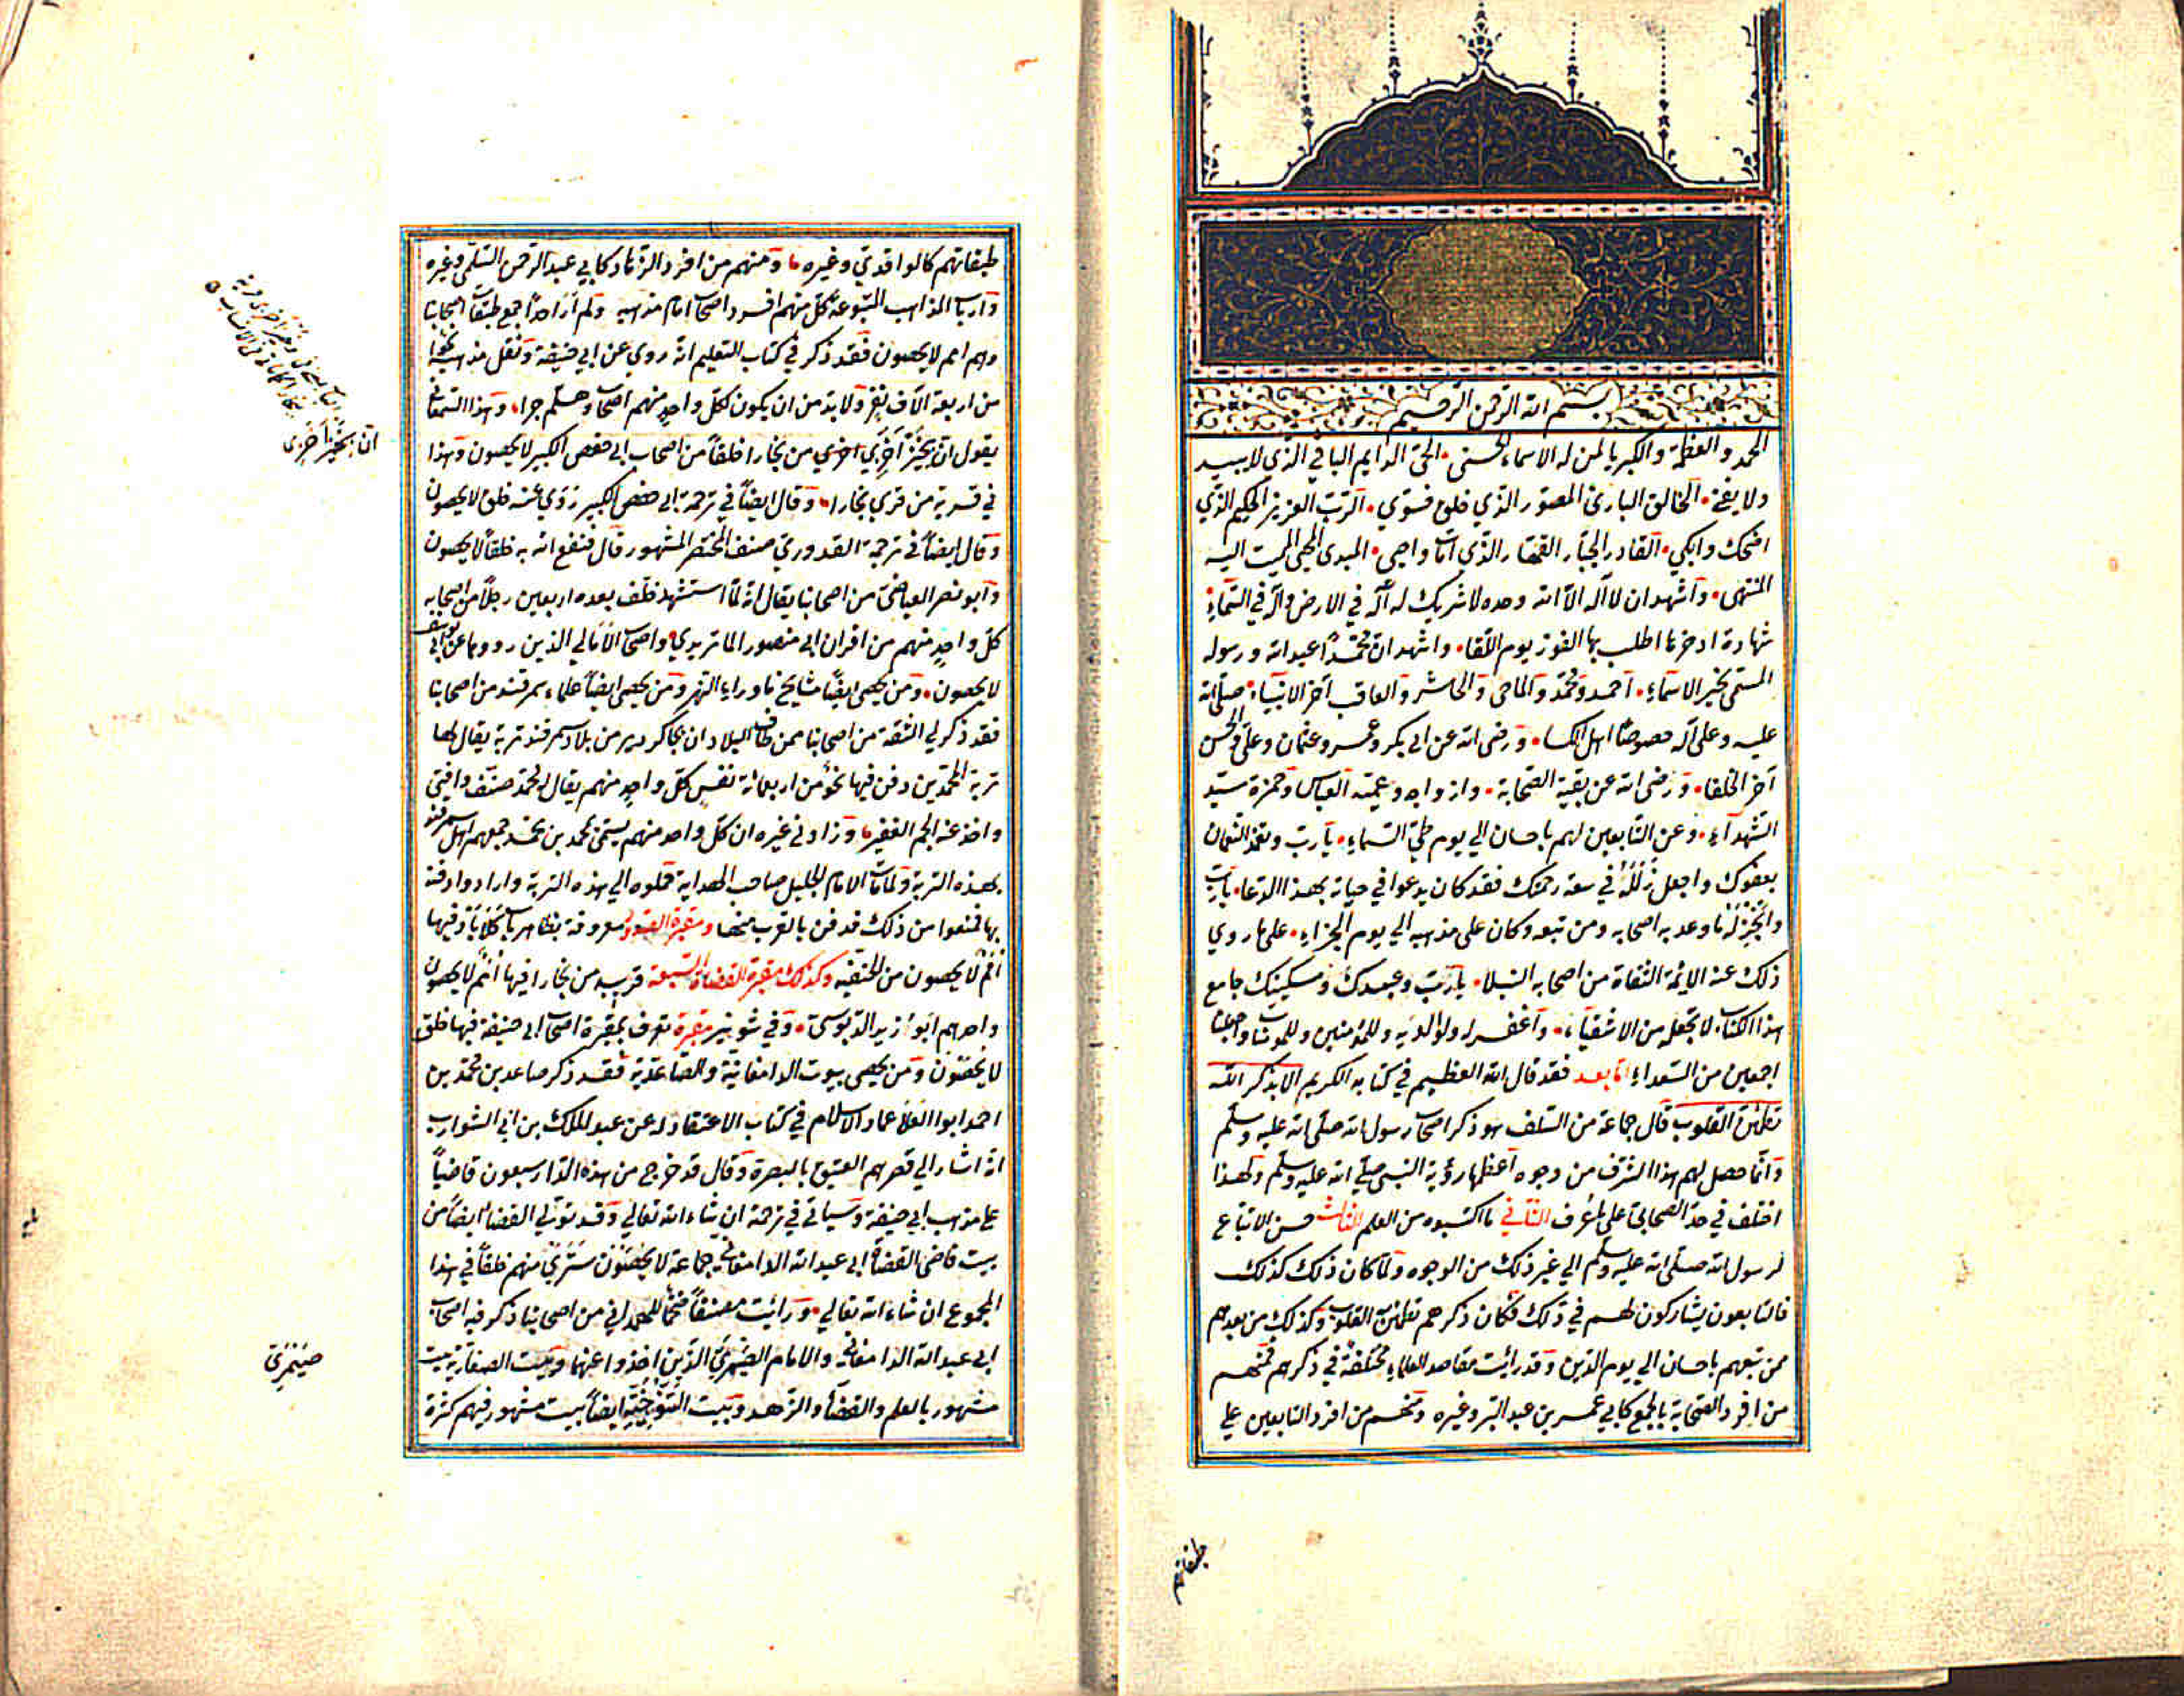 بسم الله الرحمن الرحيم
الحمد والعظمة والكبريا لمن له الاسماء الحسنى الحي الدايم الباقي الذي لا يبيد
ولا يفنى الخالق البارئ المصور الذي خلق فسوي الرب العزيز الحكيم الذي
اضحك وابكي القادر الجبار القهار الذي امات واحيى المبدى المحيى المميت اليه
المنتهى واشهد ان لا اله الا الله وحده لا شريك له اله في الارض واله في السماء
شهادة ادخرها اطلب بها الفوز يوم اللقاء واشهد ان محمدًا عبد الله ورسوله
المسمى بخير الاسماء احمد ومحمد والماحى والحاشر والعاقب آخر الانبياء صلى الله
عليه وعلى آله خصوصًا اهل الكسا ورضى الله عن ابي بكر وعمر وعثمان وعلي والحسن
آخر الخلفا ورضى الله عن بقية الصحابة وازواجه وعميه العباس وحمزة سيد
الشهدآء وعن التابعين لهم باحسان الي يوم طي السماء يا رب وتغمد النعمان
بعفوك واجعل نزله في سعة رحمتك فقد كان يدعوا في حياته بهذا الدعا يا رب
وانجز له ما وعد به اصحابه ومن تبعه وكان على مذهبه الي يوم الجزاء على ما روي
ذلك عنه الايمة الثقاة من اصحابه النبلا يا رب وعبيدك ومسكينك جامع
هذا الكتاب لا تجعله من الاشقياء واغفر له ولوالديه وللمؤمنين وللمؤمنات واجعلنا
اجمعين من السعداء اما بعد فقد قال الله العظيم في كتابه الكريم الا بذكر الله
تطمئن القلوب قال جماعة من السلف هو ذكر اصحاب رسول الله صلى الله عليه وسلم
وانما حصل لهم هذا الشرف من وجوه اعظمها رؤية النبي صلي الله عليه وسلم ولهذا
اختلف في حد الصحابي على ما عرف الثاني ما اكتسبوه من العلم الثالث حسن الاتباع
لرسول الله صلى الله عليه وسلم الي غير ذلك من الوجوه ولما كان ذلك كذلك
فالتابعون يشاركون لهم في ذلك فكان ذكرهم تطمئن القلوب وكذلك من بعدهم
ممن تبعهم باحسان الي يوم الدين وقد رايت مقاصد العلماء مختلفة في ذكرهم فمنهم
من افرد الصحابة بالجمع كابي عمر بن عبد البر وغيره ومنهم من افرد التابعين علي
طبقاتهم
طبقاتهم كالواقدي وغيره ومنهم من افرد الزهاد كابي عبد الرحمن السلمي وغيره
وارباب المذاهب المتبوعة كل منهم افرد اصحاب امام مذهبه ولم ار احدًا جمع طبقات اصحابنا
وهم امم لا يحصون فقد ذكر في كتاب التعليم انه روي عن ابي حنيفة ونقل مذهبه نحوًا
من اربعة الآف نفر ولا بد من ان يكون لكل واحدٍ منهم اصحاب وهلم جرا وهذا السمعاني
يقول ان بخيزاخزي اخري من بخارا خلقًا من اصحاب ابي حفص الكبير لا يحصون وهذا
في قرية من قري بخارا وقال ايضًا في ترجمة ابي حفص الكبير روي عنه خلق لا يحصون
وقال ايضًا في ترجمة القدوري مصنف المختصر المشهور قال فنفع الله به خلقًا لا يحصون
وابو نصر العياضي من اصحابنا يقال انه لما استشهد خلف بعده اربعين رجلًا من اصحابه
كل واحدٍ منهم من اقران ابي منصور الماتريدي واصحاب الامالي الذين رووها عن ابي يوسف
لا يحصون ومن يحصى ايضًا مشايخ ما وراء النهر ومن يحصى ايضًا علماء سمرقند من اصحابنا
فقد ذكر لي الثقة من اصحابنا ممن طاف البلاد ان بجاكرديز من بلاد سمرقند تربة يقال لها
تربة المحمدين دفن فيها نحو من اربعمائة نفس كل واحدٍ منهم يقال له محمد صنف وافتي
واخذ عنه الجم الغفير وزاد في غيره ان كل واحد منهم يسمى محمد بن محمد جمعهم اهل سمرقند
بهذه التربة ولما مات الامام الجليل صاحب الهداية حملوه الي هذه التربة وارادوا دفنه
بها فمنعوا من ذلك فدفن بالقرب منها ومقبرة الصدور معروفة بظاهر باب كلاباذ فيها
امم لا يحصون من الحنفيه وكذلك مقبرة القضاة السبعة قريب من بخارا فيها امم لا يحصون
واحدهم ابو زيد الدبوسي وفي شونيز مقبرة تعرف بمقبرة اصحاب ابي حنيفة فيها خلق
لا يحصون ومن يحصى بيوت الدامغانية والصاعدية فقد ذكر صاعد بن محمد بن
احمد ابو العلا عماد الاسلام في كتاب الاعتقاد له عن عبد الملك بن ابي الشوارب
انه اشار الي قصرهم العتيق بالبصرة وقال قد خرج من هذه الدار سبعون قاضيًا
على مذهب ابي حنيفة وسياتي في ترجمته ان شاء الله تعالي وقد تولي القضاء ايضًا من
بيت قاضي القضاة ابي عبد الله الدامغاني جماعة لا يحصون ستري منهم خلقًا في هذا
المجموع ان شاء الله تعالي ورائت مصنفًا ضخمًا للهمداني من اصحابنا ذكر فيه اصحاب
ابي عبد الله الدامغاني والامام الصيمري الذين اخذوا عنهما وبيت الصفارية بيت
مشهور بالعلم والقضاء والزهد وبيت النوجبية ايضًا بيت مشهور فيهم كثرة
صيمري